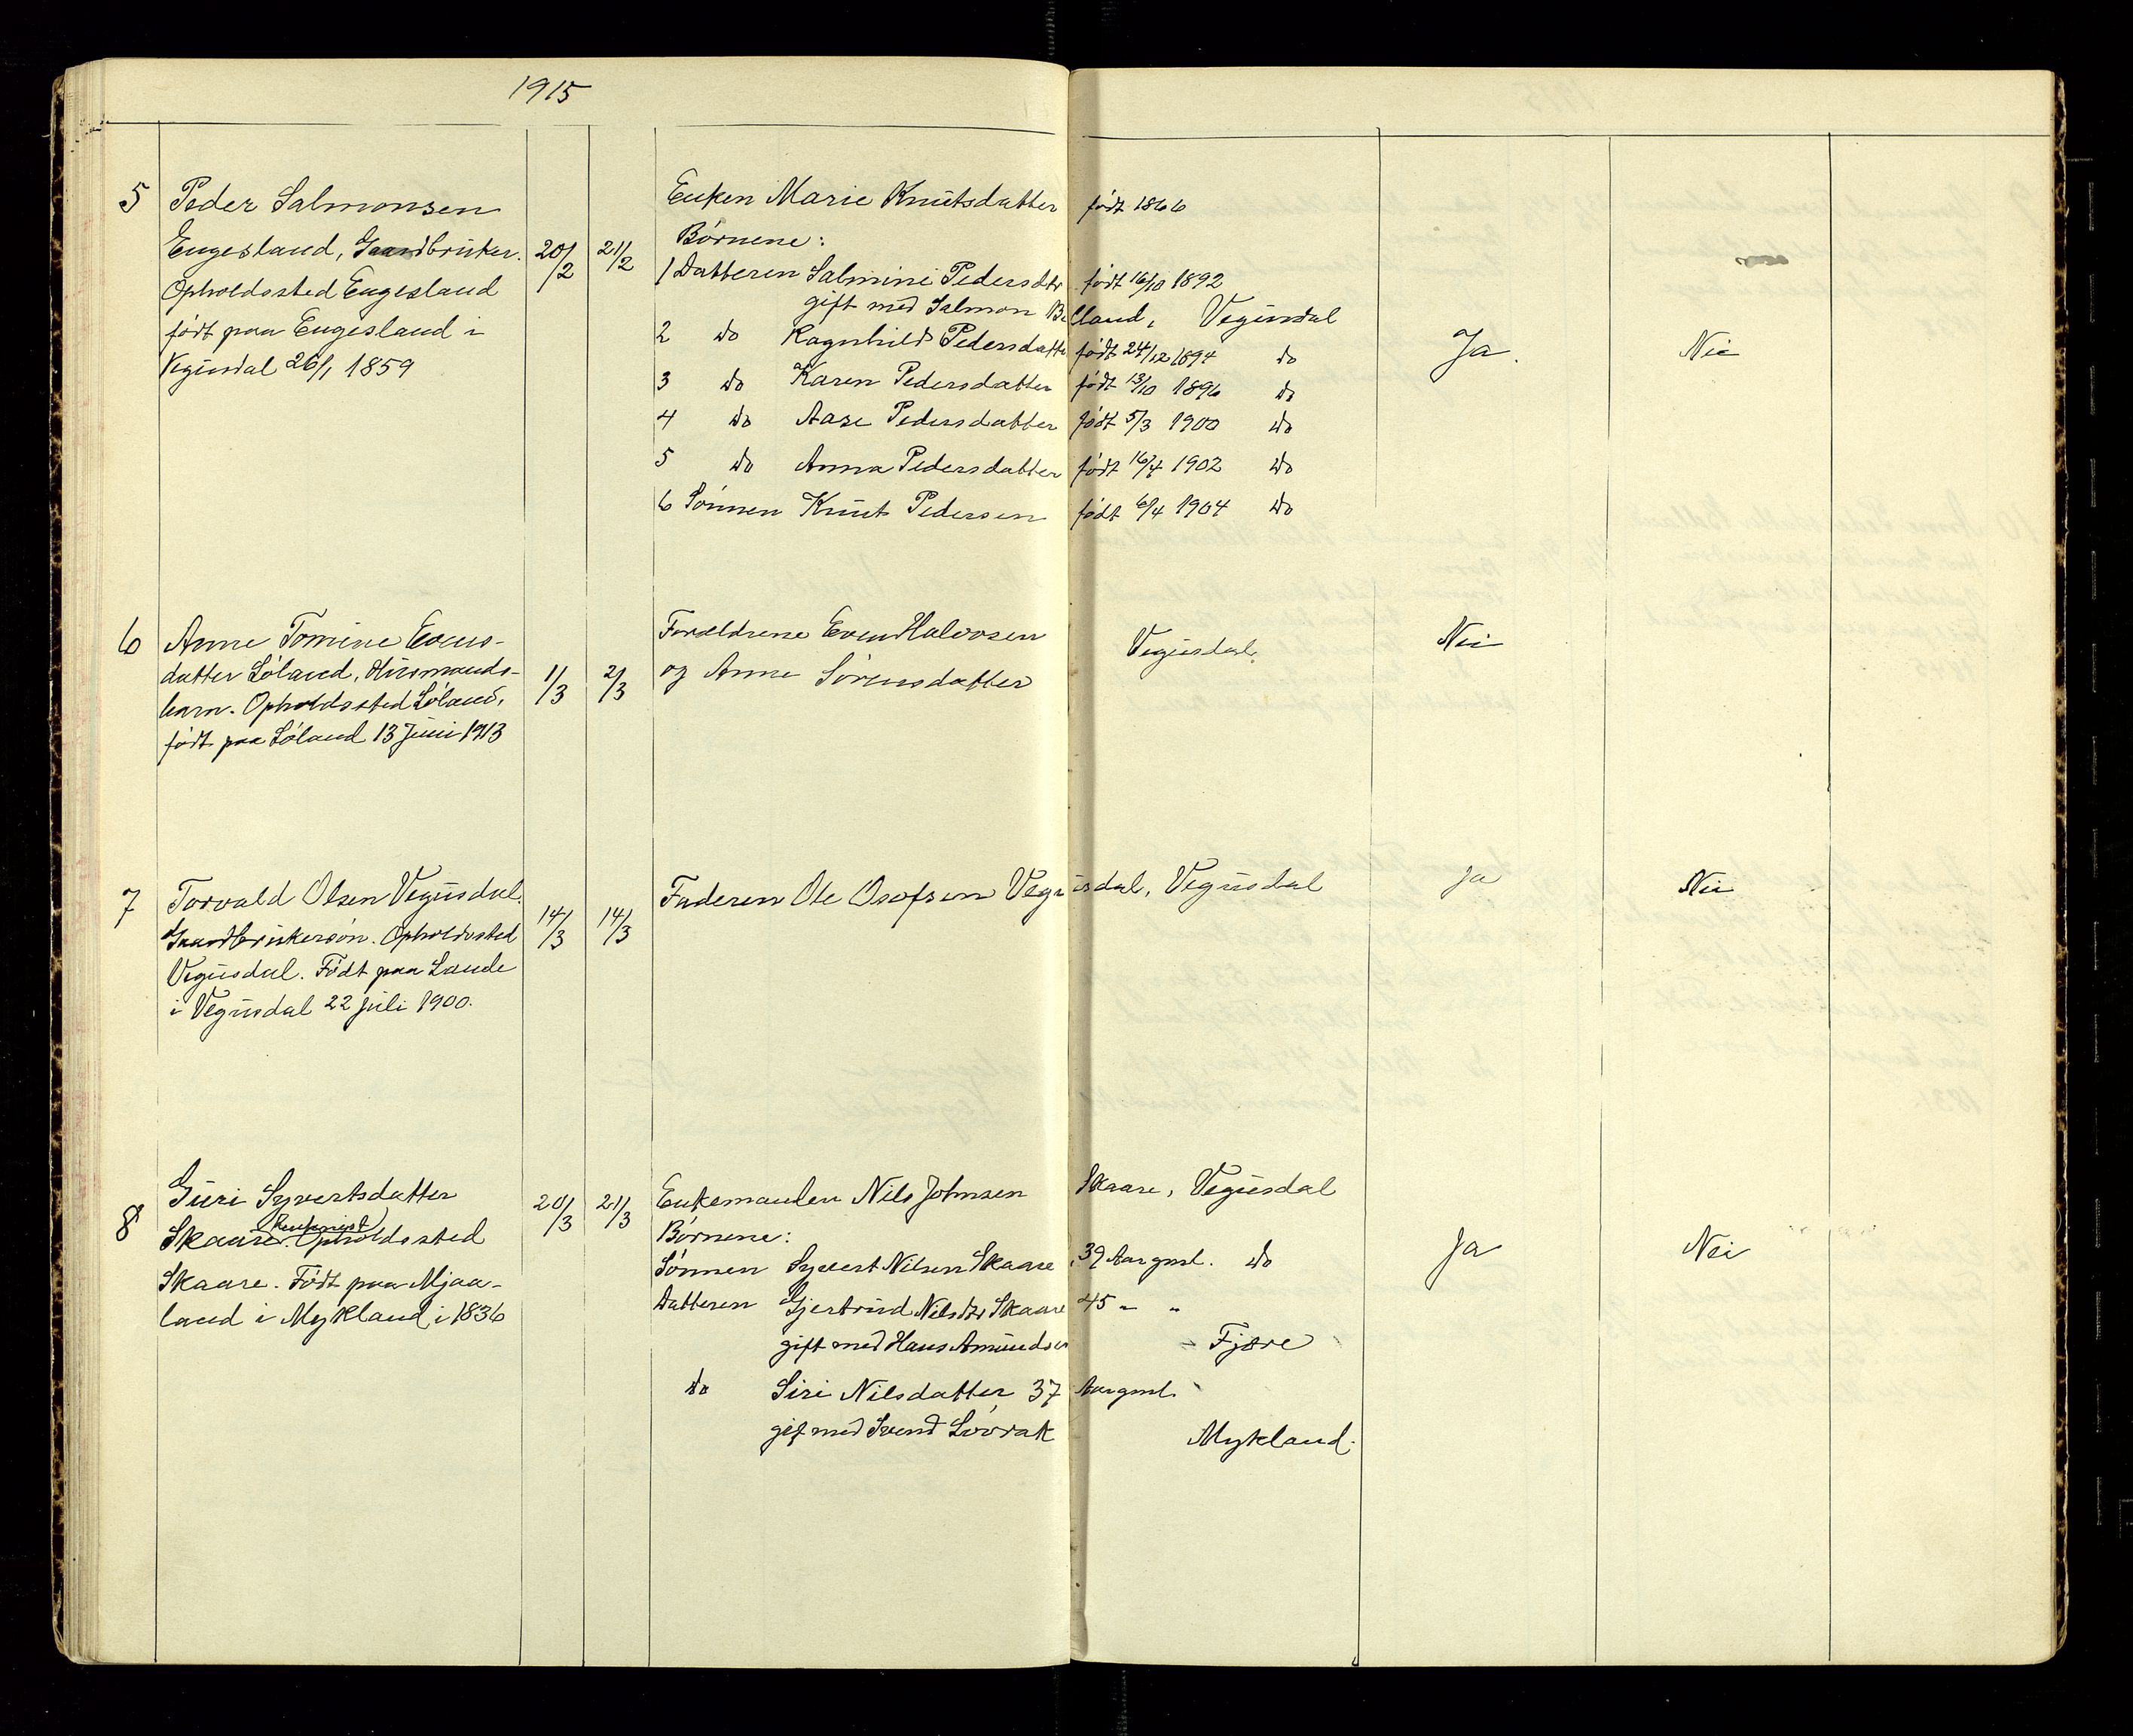 1915
5
Peder Salmonsen
Engesland, Gaardbruker.
Opholdssted Engesland
født paa Engesland i
Vegusdal 26/1 1859
20/2
21/2
Enken Marie Knutsdatter født 1866
Børnene:
1 Datteren Salmine Pedersdtr født 16/10 1892
gift med Salmon lland, Vegusdal
2 do Ragnhild Pedersdatter født 24/12 1894 do
3 do Karen Pedersdatter født 13/10 1896 do
4 do Aase Pedersdatter født 5/3 1900 do
5 do Anna Pedersdatter født 16/4 1902 do
6 Sønnen Knut Pedersen født 6/4 1904 do
Ja.
Nei
6
Anne Tomine Evens-
datter Løland, Husmands-
barn. Opholdssted Løland,
født paa Løland 13 Juni 1913
1/3
2/3
Forældrene Even Halvorsen
og Anne Sørensdatter
Vegusdal
Nei
7
Torvald Olsen Vegusdal.
Gaardbrukersøn. Opholdssted
Vegusdal. Født paa Lande
i Vegusdal 22 juli 1900.
14/3
14/3
Faderen Ole Osofsen Vegusdal, Vegusdal
Ja
Nei
8
Guri Syvertsdatter
Skaare. Opholdssted
Skaare. Født paa Mjaa-
land i Mykland i 1836
20/3
21/3
Enkemanden Nils Johnsen Skaare, Vegusdal
Børnene:
Sønnen Syvert Nilsen Skaare, 39 Aar gml. do
Datteren Gjertrud Nilsdtr Skaare 45 " "
gift med Hans Amundsen - Fjære
do Siri Nilsdatter 37 Aar gml.
gif med Svend Løvrak Mykland.
Ja
Nei